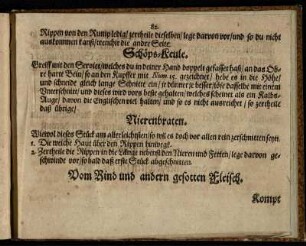 82.
Rippen von den Runiplediq/ zertheile dieselben/ lege darvon vor/ und so du nicht
auskommen kanst/ trenche die andre Seite.
Schöps-Keule.
Greiff mit den Serviet/ welches du in deiner Hand doppelt gefasset hast/ an das
harte Bein/ so an den Kupffer mit Num. gezeichnet/ hebe es in die Höhe/
und schneide gleich lange Schnitte ein/ je dünner je besser/ löse dasselbe mit einem
Unterschnitt/ und dieses wird vors beste gehalten/ welches scheinet als ein Kalbs-
Auge/ davon die Englischen viel halten/ und so es nicht ausreichet/ so zertheile
das übrige/
Nierenbraten.
Wiewol dieses Stück am allerleichtsten/ so wil es doch vor allen rein zerschnitten seyn.
1. Die weiche Haut über den Rippen hinweg.
2. Zertheile die Rippen in die Länge nebenst den Nieren und Fetten/ lege darvon ge-
schwinde vor/ so bald das erste Stück abgeschnitten.
Vom Rind und andern gesotten Fleisch.
Kompt